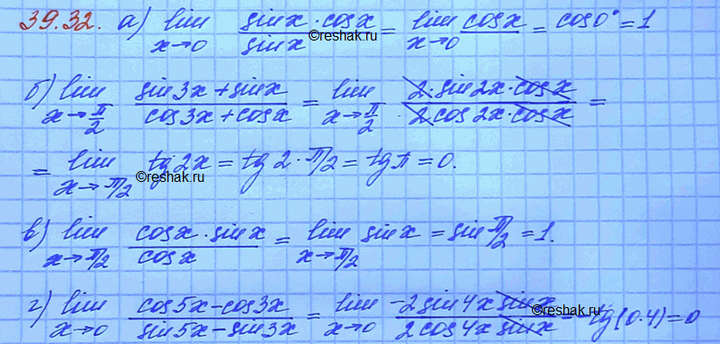 39.32. а) lim x→0 (sinx·cosx)/(sinx) = lim x→0 cosx = cos0° = 1
©reshak.ru
б) lim x→π/2 (sin3x+sinx)/(cos3x+cosx) = lim x→π/2 (2·sin2x·cosx)/(2cos2x·cosx) =
= lim x→π/2 tg2x = tg2·π/2 = tgπ = 0.
©reshak.ru
в) lim x→π/2 (cosx·sinx)/(cosx) = lim x→π/2 sinx = sinπ/2 = 1.
г) lim x→0 (cos5x-cos3x)/(sin5x-sin3x) = lim x→0 (-2sin4x sinx)/(2cos4x sinx) = -tg(0·4) = 0
©reshak.ru